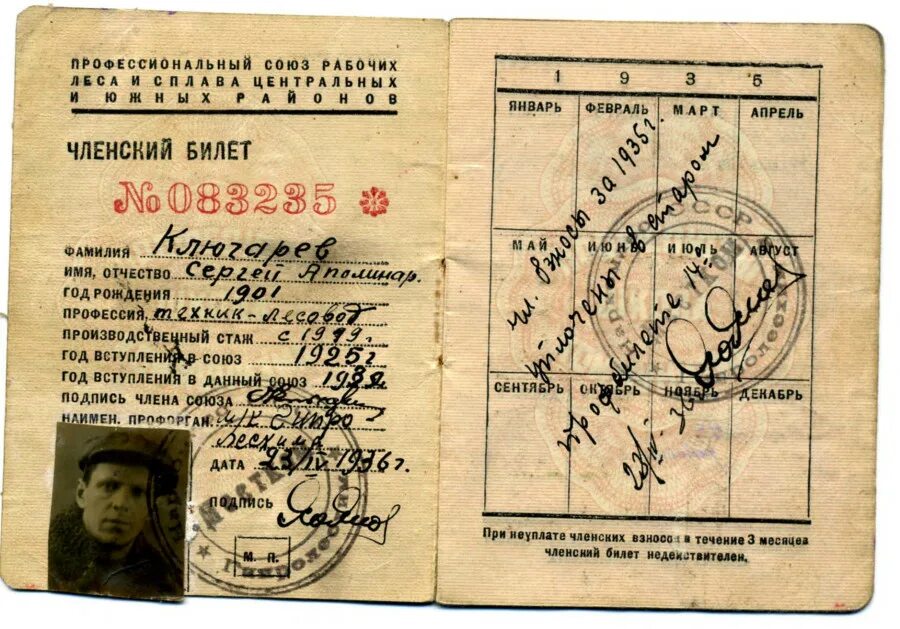 ПРОФЕССИОНАЛЬНЫЙ СОЮЗ РАБОЧИХ
ЛЕСА И СПЛАВА ЦЕНТРАЛЬНЫХ
И ЮЖНЫХ РАЙОНОВ
ЧЛЕНСКИЙ БИЛЕТ
№083235
ФАМИЛИЯ Ключарев
ИМЯ, ОТЧЕСТВО Сергей Аполинар.
ГОД РОЖДЕНИЯ 1901
ПРОФЕССИЯ, техник-лесовод
ПРОИЗВОДСТВЕННЫЙ СТАЖ с
ГОД ВСТУПЛЕНИЯ В СОЮЗ 1925г
ГОД ВСТУПЛЕНИЯ В ДАННЫЙ СОЮЗ
ПОДПИСЬ ЧЛЕНА СОЮЗА
НАИМЕН. ПРОФОРГАН. м/к Гипро-
лесхима
ДАТА 23/IV 1936г.
ПОДПИСЬ
М. П.
Гипролесхим
1 9 3 5
ЯНВАРЬ ФЕВРАЛЬ МАРТ АПРЕЛЬ
МАЙ ИЮНЬ ИЮЛЬ АВГУСТ
СЕНТЯБРЬ ОКТЯБРЬ НОЯБРЬ ДЕКАБРЬ
чл. взносы за 1935г.
уплочены в старом
профбилете
СССР
При неуплате членских взносов в течение 3 месяцев
членский билет недействителен.